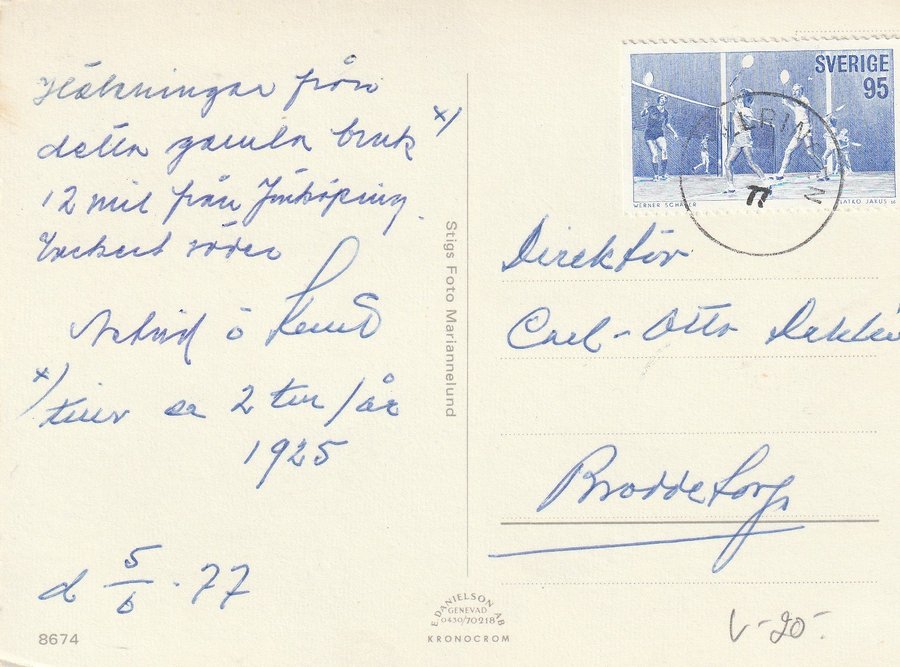 Hälsningar från
detta gamla bruk x)
12 mil från Jönköping.
söder
Astrid o Knut
x)
er 2 ton / år
1925
d 5/6 · 77
8674
Stigs Foto Mariannelund
E. DANIELSON AB
GENEVAD
0430/70218
KRONOCROM
SVERIGE
95
WERNER SCHÄFER
ZLATKO JAKUS
77
Direktör
Carl-Otto
Broddetorp
V-20:-